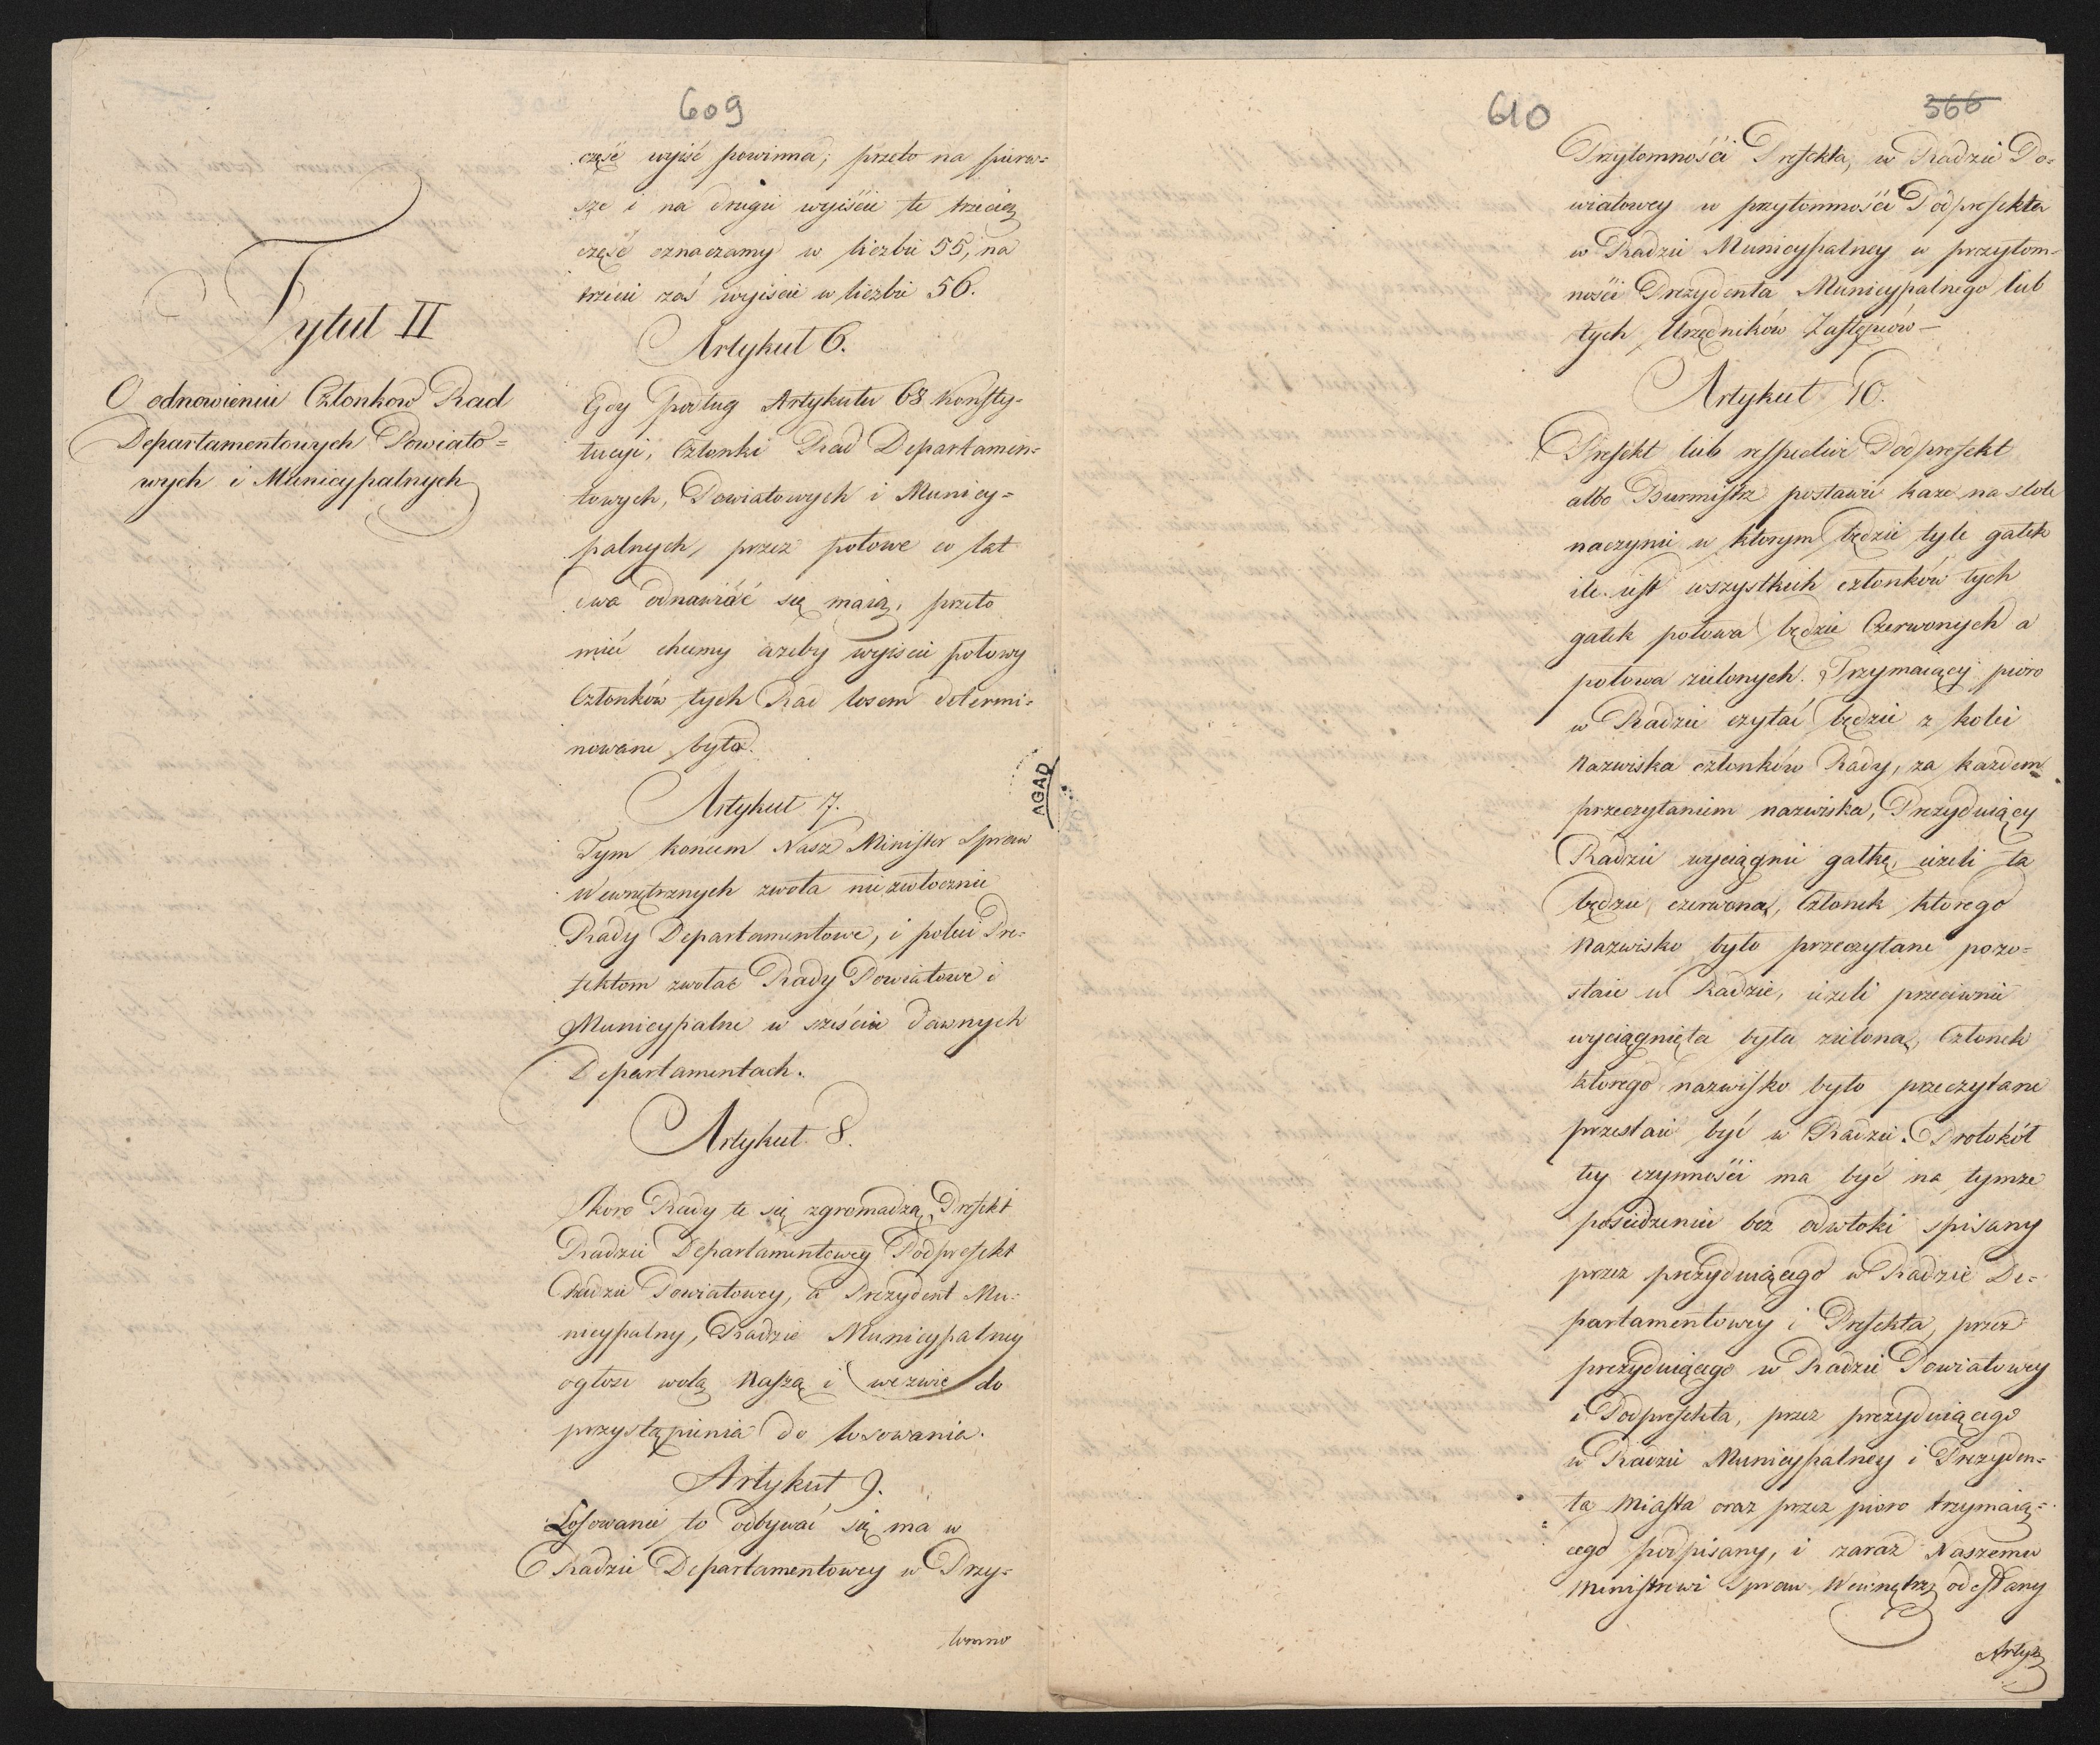 609
Tytuł II
O odnowieniu Członkow Rad
Departamentowych Powiato=
wych i Municypalnych
część wyiść powinna; przeto na pierw=
sze i na drugie wyiście te trzecią
część oznaczamy w liczbie 55, na
trzecie zaś wyiście w liczbie 56.
Artykuł 6.
Gdy podług Artykułu 68 Konsty=
tucyi, Członki Rad Departamen=
towych, Powiatowych i Municy=
palnych, przez połowę co lat
dwa odnawiać się maią, przeto
mieć chcemy ażeby wyiście połowy
Członków tych Rad losem determi=
nowane było.
Artykuł 7.
Tym koncem Nasz Minister Spraw
Wewnętrznych zwoła niezwłocznie
Rady Departamentowe, i poleci Pre=
fektom zwołać Rady Powiatowe i
Municypalne w sześciu dawnych
Departamentach.
Artykuł 8.
Skoro Rady te się zgromadzą, Prefekt
Radzie Departamentowey Podprefekt
Radzie Powiatowey, a Prezydent Mu=
nicypalny, Radzie Municypalney
ogłosi wolą Naszą i wezwie do
przystąpienia do losowania.
Artykuł 9.
Losowanie to odbywać się ma w
Radzie Departamentowey w Przy=
tomno
AGAD
610
366
Przytomności Prefekta, w Radzie Po=
wiatowey w przytomności Podprefekta
w Radzie Municypalney w przytom=
ności Prezydenta Municypalnego lub
tych Urzędników Zastępców —
Artykuł 10.
Prefekt lub respective Podprefekt
albo Burmistrz postawić każe na stole
naczynie w ktorym będzie tyle gałek
ile iest wszystkich członków tych
gałek połowa będzie Czerwonych a
połowa zielonych. Trzymaiący pióro
w Radzie czytać będzie z kolei
Nazwiska członków Rady, za każdem
przeczytaniem nazwiska, Prezyduiący
Radzie wyciągnie gałkę, ieżeli ta
będzie czerwoną, Członek ktorego
Nazwisko było przeczytane pozo=
staie w Radzie, ieżeli przeciwnie
wyciągnięta była zieloną, Członek
ktorego nazwisko było przeczytane
przestaie być w Radzie. Protokół
tey czynności ma być na tymże
posiedzeniu bez odwłoki spisany
przez prezyduiącego w Radzie De=
partamentowey i Prefekta, przez
prezyduiącego w Radzie Powiatowey
i Podprefekta, przez prezyduiącego
w Radzie Municypalney i Prezyden=
ta Miasta oraz przez pioro trzymaią=
cego podpisany, i zaraz Naszemu
Ministrowi Spraw Wewnętrz odesłany
Artyk